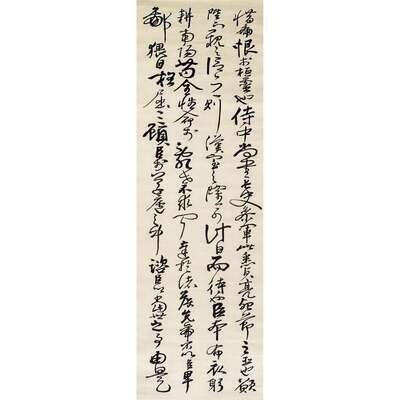 惜痛恨於桓靈也侍中尚書長史參軍此悉貞亮死節之臣也願
陛下親之信之則漢室之隆可計日而待也臣本布衣躬
耕南陽苟全性命於亂世不求聞達於諸侯先帝不以臣卑
鄙猥自枉屈三顧臣於草廬之中諮臣以當世之事由是